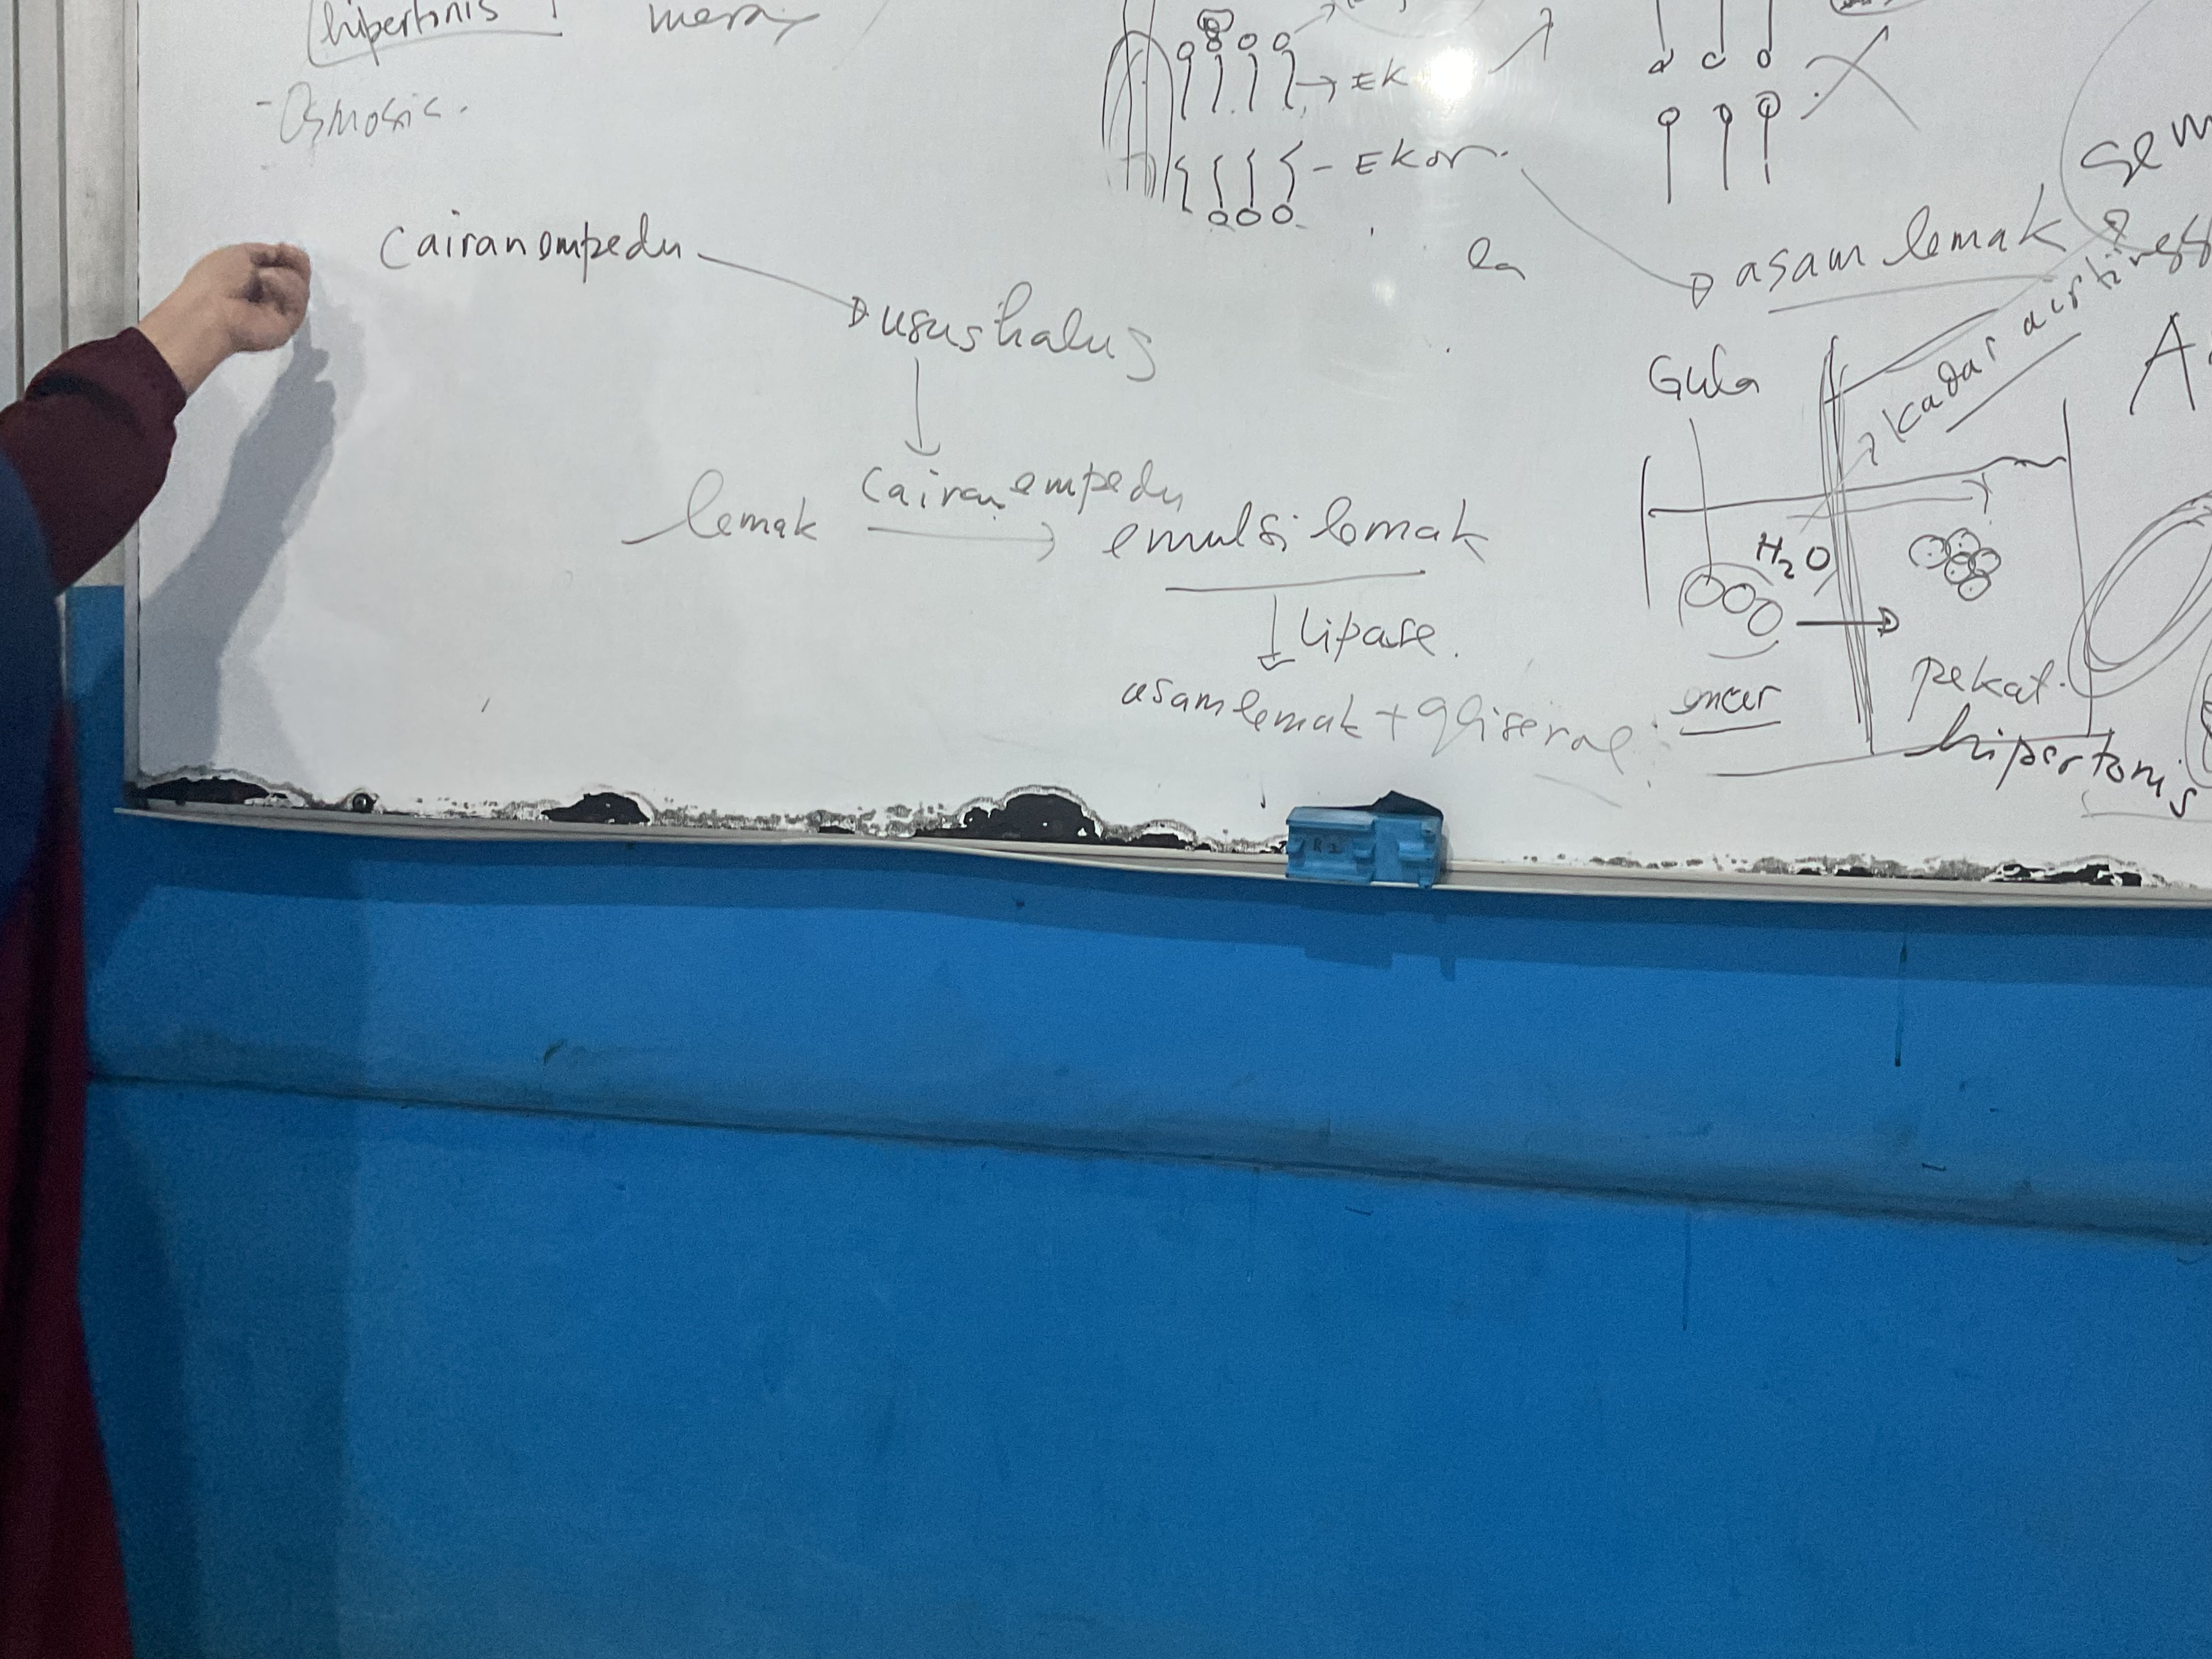 hipertonis
- Osmosis.
Cairan empedu
usus halus
lemak cairan empedu emulsi lemak
lipase.
asam lemak + gliserol
EK
- Ekor.
asam lemak
kadar air tinggi
Gula
H2O
encer
pekat.
hipertonis